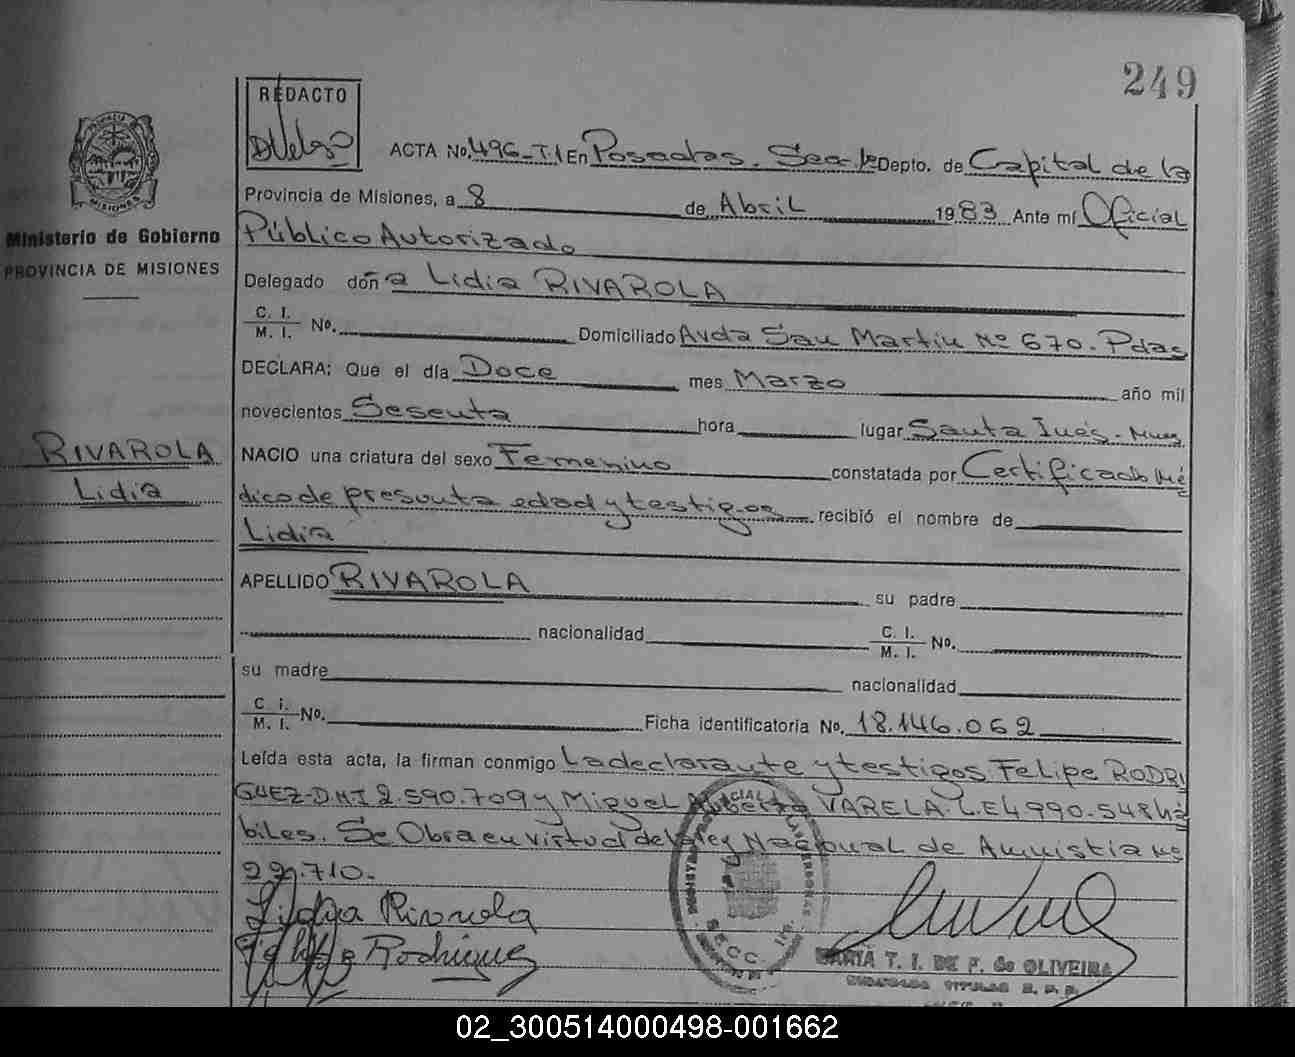 249
REDACTO
ACTA No. 496-T.1 En Posadas. Sec. 1º Depto. de Capital de la
Provincia de Misiones, a 8 de Abril 1983 Ante mí Oficial
Público Autorizado
Ministerio de Gobierno
PROVINCIA DE MISIONES
Delegado doña Lidia RIVAROLA
C. I.
M. I. No. Domiciliado Avda San Martin Nº 670. Pdas
DECLARA: Que el día Doce mes Marzo año mil
novecientos Sesenta hora lugar Santa Inés-
RIVAROLA
Lidia
NACIO una criatura del sexo Femenino constatada por Certificado Mé
dico de presunta edad y testigos recibió el nombre de
Lidia
APELLIDO RIVAROLA su padre
nacionalidad C. I.
M. I. No.
su madre nacionalidad
C. I.
M. I. No. Ficha identificatoria No. 18.146.062
Leída esta acta, la firman conmigo La declarante y testigos Felipe RODRI
GUEZ-D.N.I 2.590.709 y Miguel Alberto VARELA. L.E 4.990.548 há
biles. Se Obra en virtud de la Ley Nacional de Amnistia Nº
22.710.
Lidia Rivarola
Rodriguez
MARIA T. I. DE F. de OLIVEIRA
02_300514000498-001662